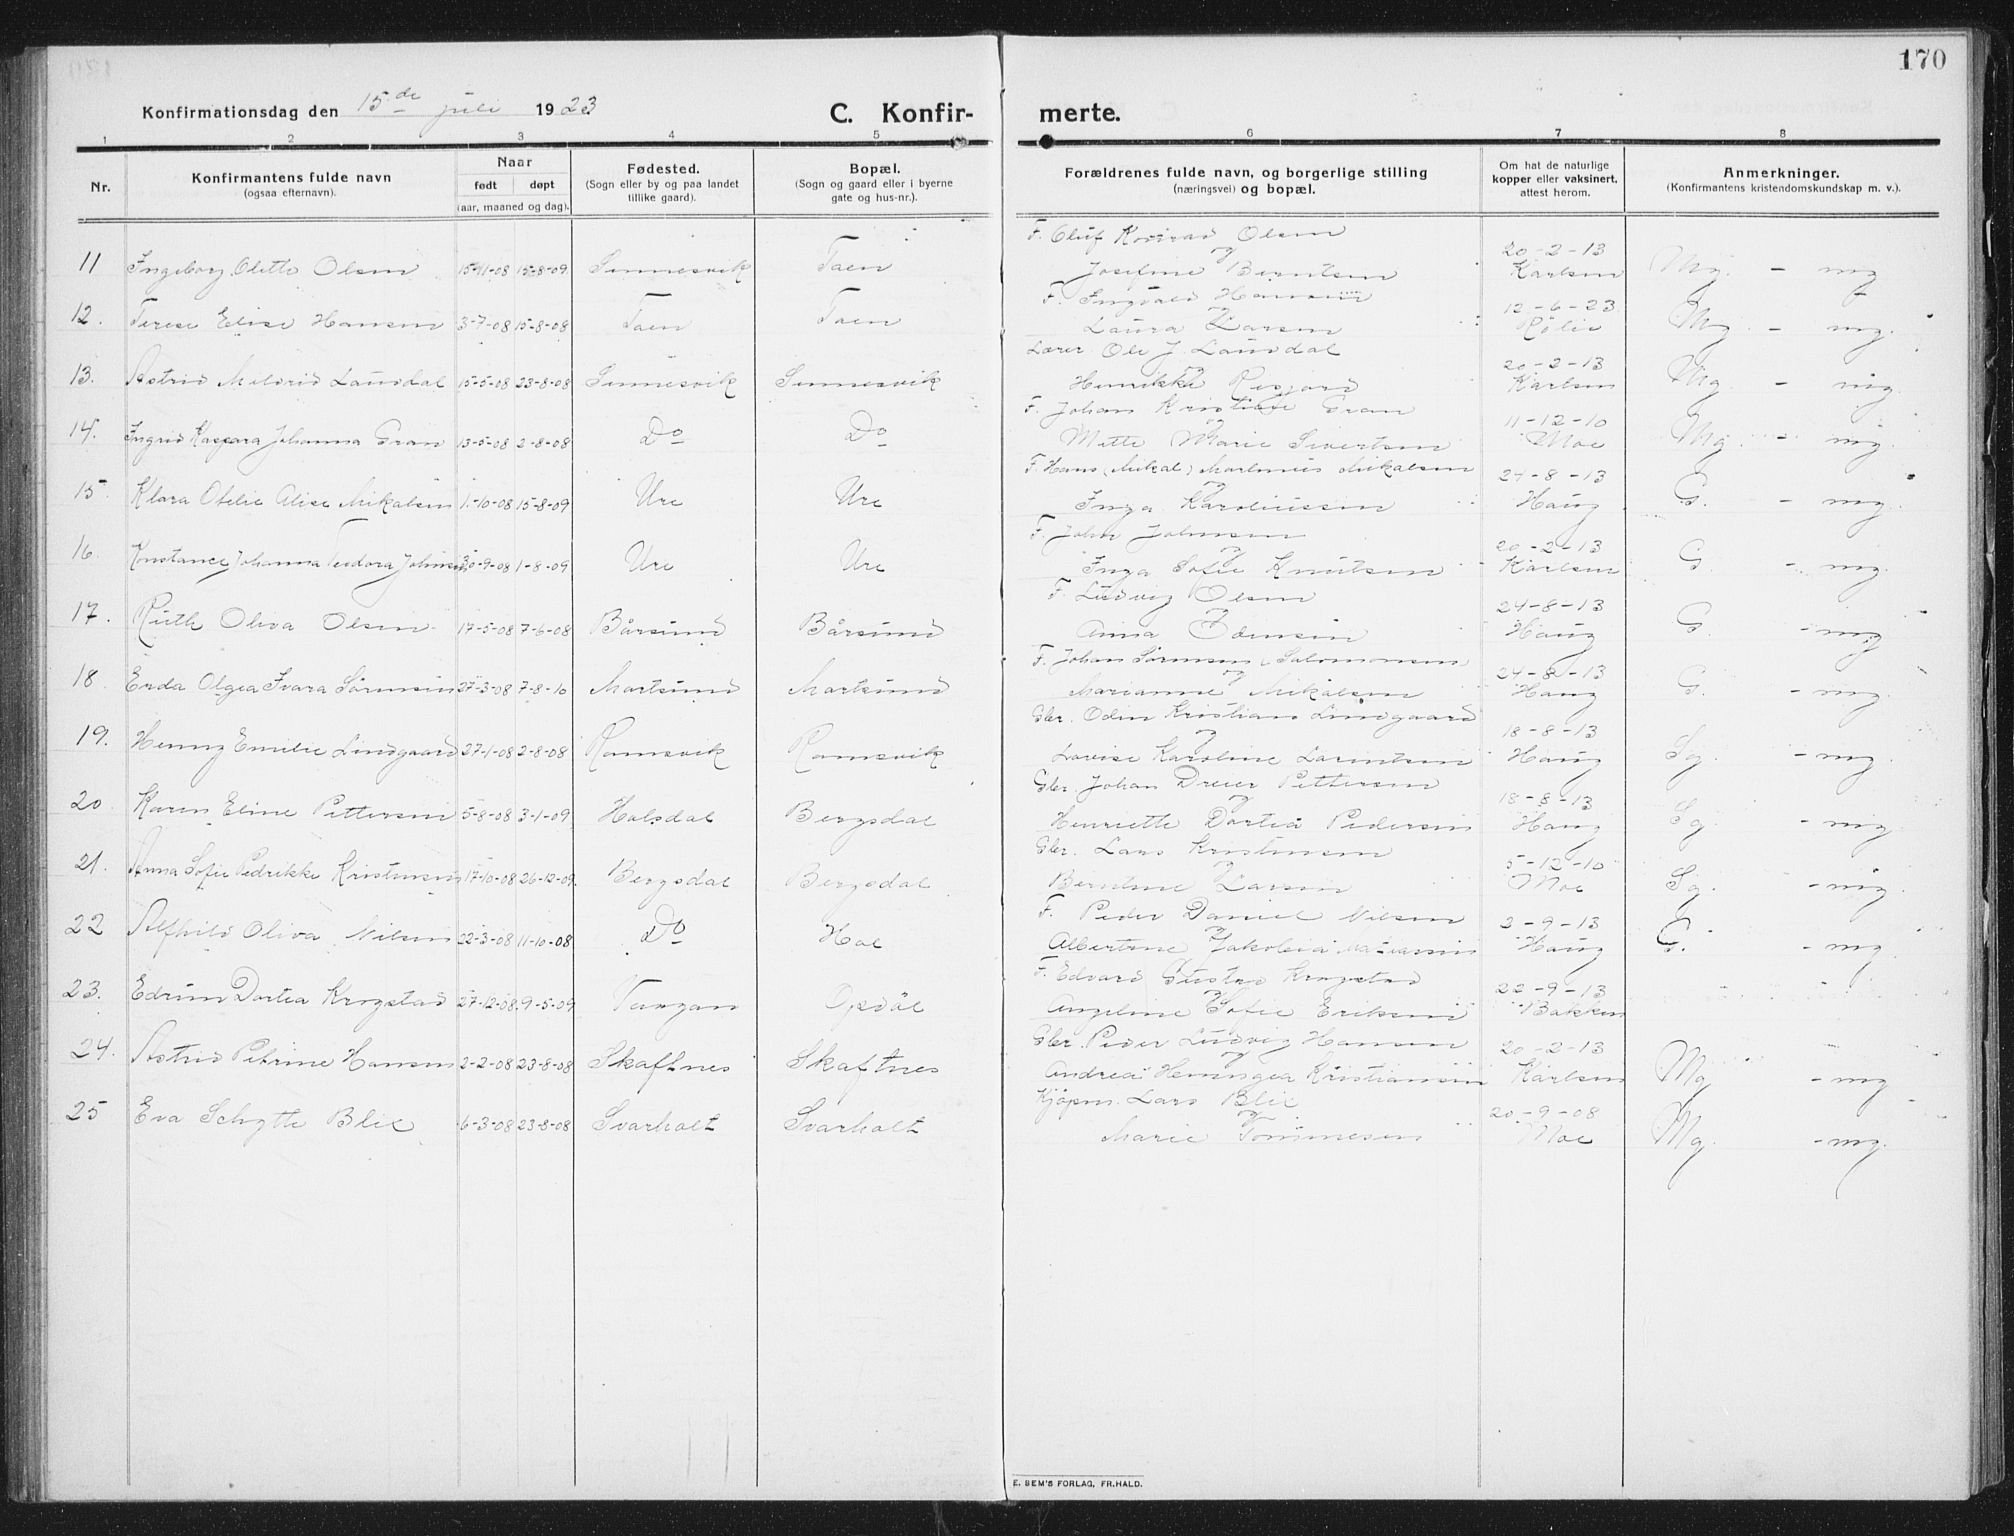 170
Konfirmationsdag den 15de juli 1923
C. Konfir-
merte.
1 2 3 4 5 6 7 8
Nr.
Konfirmantens fulde navn
(ogsaa efternavn).
Naar
født døpt
(aar, maaned og dag).
Fødested.
(Sogn eller by og paa landet
tillike gaard).
Bopæl.
(Sogn og gaard eller i byerne
gate og hus-nr.).
Forældrenes fulde navn, og borgerlige stilling
(næringsvei) og bopæl.
Om hat de naturlige
kopper eller vaksinert,
attest herom.
Anmerkninger.
(Konfirmantens kristendomskundskap m. v.).
F. Oluf Konrad Olsen
og
11 Ingeborg Olette Olsen 15-11-08 15-8-09 Sennesvik Taen Josefine Berntsen 20-2-13 Karlsen Mg. - mg
F. Ingvald Hansen
og
12. Terese Elise Hansen 3-7-08 15-8-08 Taen Taen Laura Larsen 12-6-23 Rølie Mg - mg.
Lærer Ole J. Lausdal
og
13. Astrid Meldrid Lausdal 15-5-08 23-8-08 Sennesvik Sennesvik Henrikke Risjord 20-2-13 Karlsen Mg - mg.
F. Johan Kristian Gran
og
14. Ingrid Kaspara Johanna Gran 13-5-08 2-8-08 Do Do Mette Marie Sivertsen 11-12-10 Moe Mg - mg.
F. Hans (Mikal) Martinus Mikalsen
og
15. Klara Otelie Alise Mikalsen 1-10-08 15-8-09 Ure Ure Inga Karoliussen 24-8-13 Haug G. - mg
F. John Johnsen
og
16. Konstance Johanna Teodora Johnsen 30-9-08 1-8-09 Ure Ure Inga Sofie Knutsen 20-2-13 Karlsen G. - mg.
F. Ludvig Olsen
og
17. Ruth Oliva Olsen 17-5-08 7-6-08 Bårsund Bårsund Anna Edensen 24-8-13 Haug G. - mg
F. Johan Sørensen (Salomonsen
og
18. Erda Olgea Svara Sørensen 27-3-08 7-8-10 Mortsund Mortsund Marianne Mikalsen 24-8-13 Haug G. - mg.
Gbr. Odin Kristian Lindgaard
og
19. Henny Emilie Lindgaard 27-1-08 2-8-08 Ramsvik Ramsvik Lovise Karoline Lorentsen 18-8-13 Haug Sg - mg.
Gbr. Johan Dreier Pettersen
og
20. Karen Eline Pettersen 5-8-08 3-1-09 Holsdal Bergsdal Henriette Dortea Pedersen 18-8-13 Haug Sg. - mg
Gbr. Lars Kristensen
og
21. Anna Sofie Pedrikke Kristensen 17-10-08 26-12-09. Bergsdal Bergsdal Berntine Larsen 5-12-10 Moe Sg. - mg
F. Peder Daniel Nilsen
og
22 Alfhild Oliva Nilsen 22-3-08 11-10-08 Do Hol Albertine Jakobea 2-9-13 Haug G. - mg
F. Edvard Gustav Krogstad
og
23. Edrun Dortea Krogstad 27-12-08 9-5-09 Tangan Opdøl Angeline Sofie Eriksen 22-9-13 Bakken
Gbr. Peder Ludvig Hansen
og
24. Astrid Petrine Hansen 2-2-08 23-8-08 Skaftnes Skaftnes Andrea Hemingea Kristiansen 20-2-13 Karlsen Mg - mg
Kjøpm. Lars Blix
og
25 Eva Schytte Blix 6-3-08 23-8-08 Svarholt Svarholt Marie Tommesen 20-9-08 Moe Mg. - mg.
E. SEM'S FORLAG, FR.HALD.